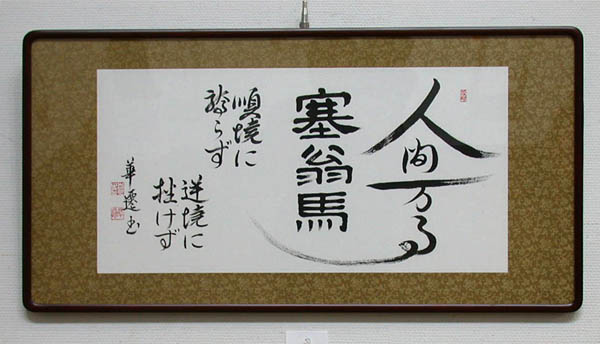 人間万事
塞翁馬
順境に
驕らず
逆境に
挫けず
華遷書